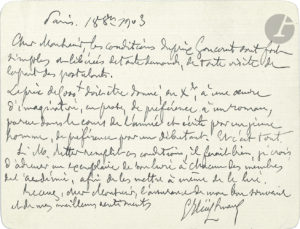 Paris. 18 8bre 1903
Cher Monsieur, les conditions du prix Goncourt sont fort
simples
de toute visite de
la part des postulants.
Le prix de doit être donné au Xbre à une œuvre
d'imagination, en prose, de préférence à un roman,
paru dans le cours de l'année et écrit par un jeune
homme, de préférence par un débutant. Et c'est tout
Si M. remplit ces conditions, il ferait bien, je crois
d'adresser un exemplaire de son livre à chacun des membres
de l'académie, afin de les mettre à même de le lire.
Recevez, cher Monsieur, l'assurance de mon bon souvenir
et de mes meilleurs sentiments